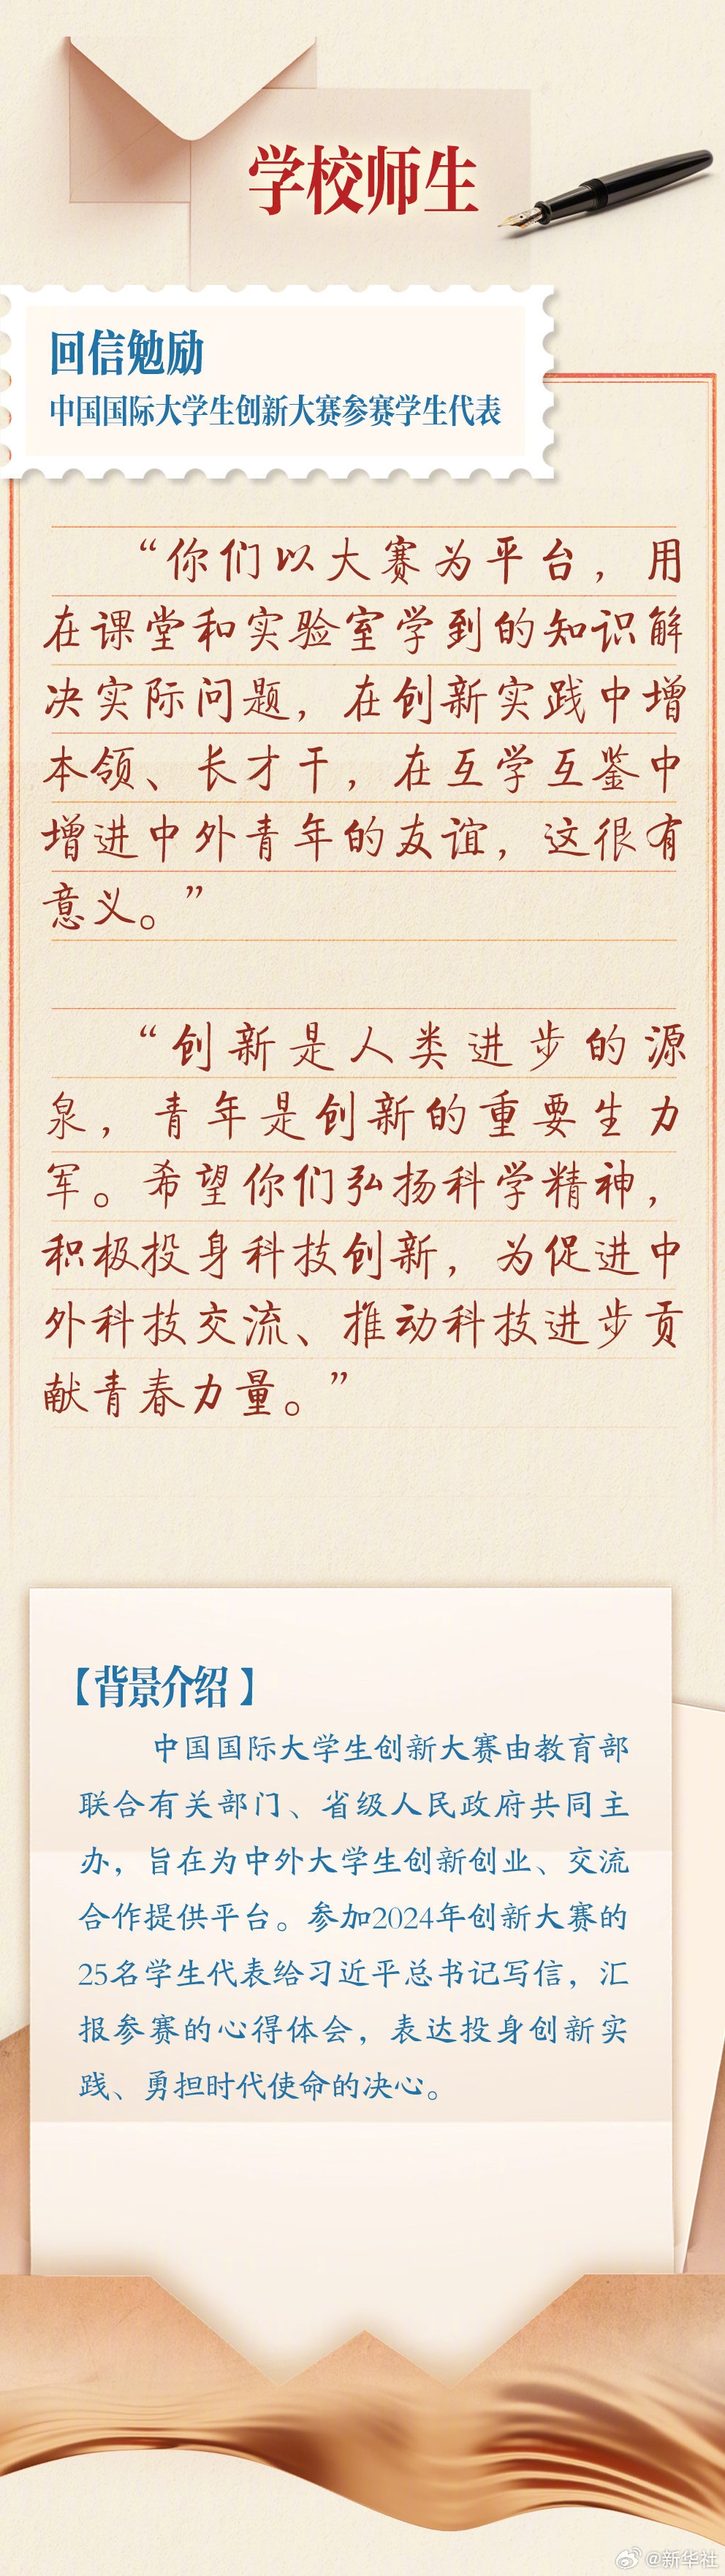 学校师生
回信勉励
中国国际大学生创新大赛参赛学生代表
“你们以大赛为平台，用
在课堂和实验室学到的知识解
决实际问题，在创新实践中增
本领、长才干，在互学互鉴中
增进中外青年的友谊，这很有
意义。”
“创新是人类进步的源
泉，青年是创新的重要生力
军。希望你们弘扬科学精神，
积极投身科技创新，为促进中
外科技交流、推动科技进步贡
献青春力量。”
【背景介绍】
中国国际大学生创新大赛由教育部
联合有关部门、省级人民政府共同主
办，旨在为中外大学生创新创业、交流
合作提供平台。参加2024年创新大赛的
25名学生代表给习近平总书记写信，汇
报参赛的心得体会，表达投身创新实
践、勇担时代使命的决心。
@新华社